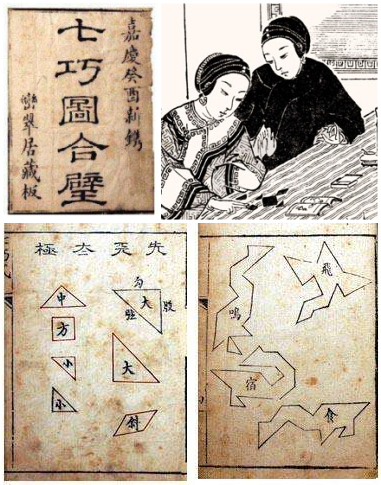 嘉慶癸酉新鐫
七巧圖合璧
巒翠居藏板
先天太極
勾
股
大
弦
大
斜
中
方
小
小
飛
鳴
宿
食